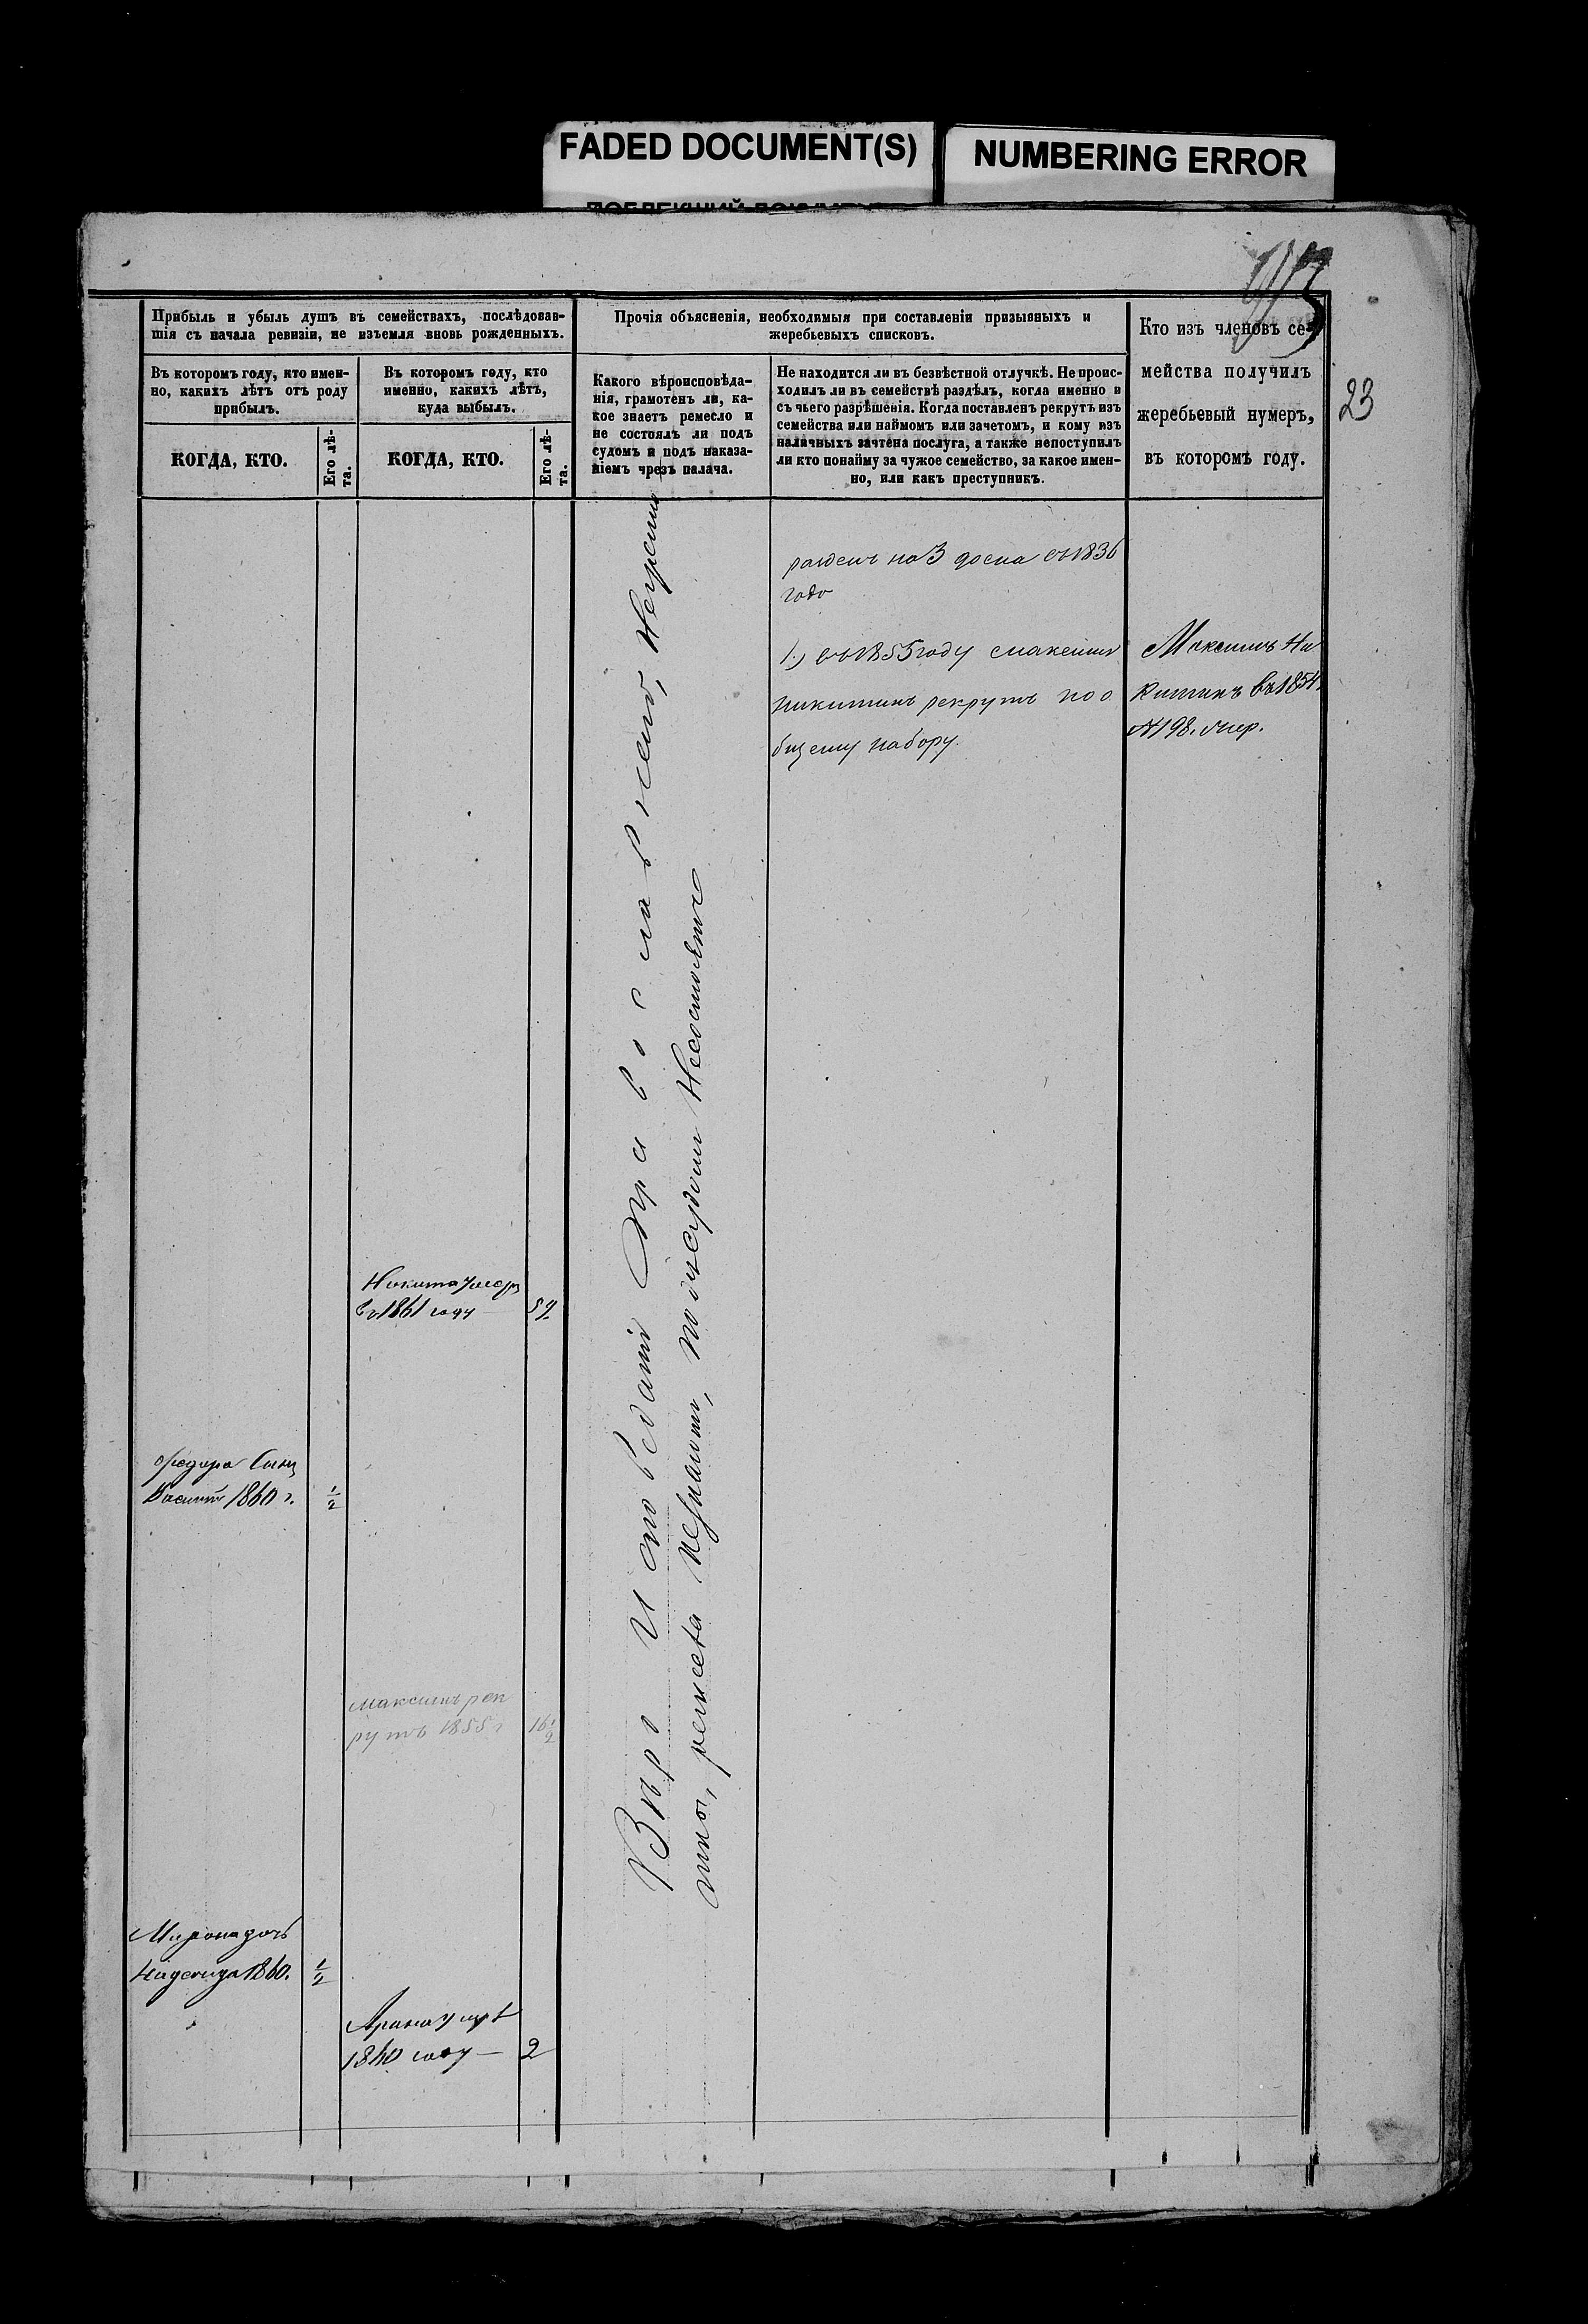 FADED DOCUMENT(S)
NUMBERING ERROR
23
Прибыль и убыль душъ въ семействахъ, послѣдовав-
шія съ начала ревизіи, не изъемля вновь рожденныхъ.
Въ которомъ году, кто имен-
но, какихъ лѣтъ отъ роду
прибылъ.
Въ которомъ году, кто
именно, какихъ лѣтъ,
куда выбылъ.
КОГДА, КТО.
Его лѣ-
та.
КОГДА, КТО.
Его лѣ-
та.
Прочія объясненія, необходимыя при составленіи призывныхъ и
жеребьевыхъ списковъ.
Какого вѣроисповѣда-
нія, грамотенъ ли, ка-
кое знаетъ ремесло и
не состоялъ ли подъ
судомъ и подъ наказа-
ніемъ чрезъ палача.
Не находится ли въ безвѣстной отлучкѣ. Не проис-
ходилъ ли въ семействѣ раздѣлъ, когда именно и
съ чьего разрѣшенія. Когда поставленъ рекрутъ изъ
семейства или наймомъ или зачетомъ, и кому изъ
наличныхъ зачтена послуга, а также непоступилъ
ли кто понайму за чужое семейство, за какое имен-
но, или какъ преступникъ.
Кто изъ членовъ се-
мейства получилъ
жеребьевый нумеръ,
въ которомъ году.
на 3 въ 1836
года
1) въ 1855 году Максимъ
Никитинъ рекрутъ по о
бщему набору.
Максимъ Ни
китинъ въ 1854
№ 198.
Никита умеръ
въ 1861 году — 59
Федора сынъ
1860 г. 1/2
Максимъ рек
рутъ 1855 г 16 1/2
Мирона дочь
1860. 1/2
Арина
1860 году — 2
Вѣро Исповеданія Православнаго,
ремесла незнаютъ, подсудом Несостоятъ